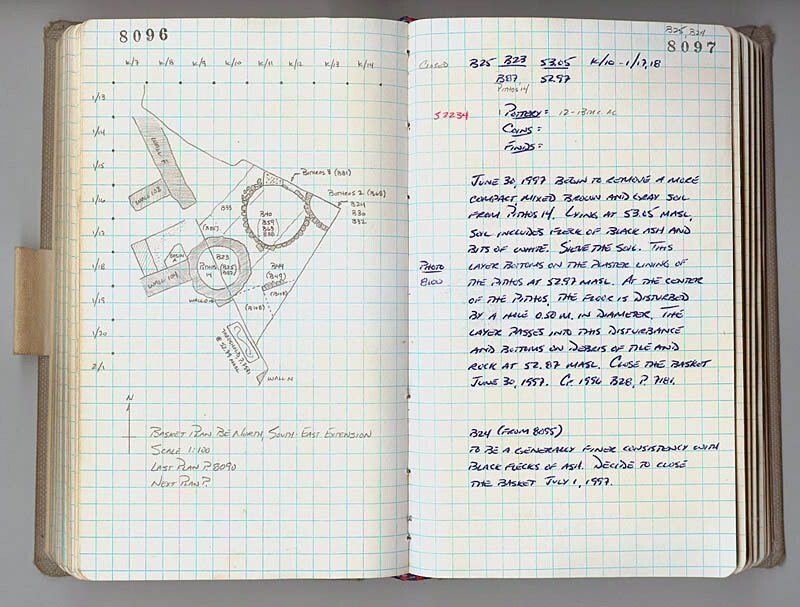 8096
K/7 K/8 K/9 K/10 K/11 K/12 K/13 K/14
1/13
1/14
1/15
1/16
1/17
1/18
1/19
1/20
2/1
WALL 103
BOTHROS 3 (B81)
BOTHROS 2 (B68)
B24
B30
B32
B33
B40
B59
BASIN
B23
PITHOS
14
WALL 104
B44
(B49)
WALL N
N
BASKET PLAN BE NORTH, SOUTH-EAST EXTENSION
SCALE 1:100
LAST PLAN P. 8090
NEXT PLAN P.
B25, B24
8097
CLOSED B25 B23 53.05 K/10-1/17,18
B87, 52.97
PITHOS 14
52234
1 POTTERY = 12-13TH C. AC
COINS =
FINDS =
JUNE 30, 1997 BEGIN TO REMOVE A MORE
COMPACT MIXED BROWN AND GRAY SOIL
FROM PITHOS 14. LYING AT 53.05 MASL,
SOIL INCLUDES FLECK OF BLACK ASH AND
BITS OF WHITE. SIEVE THE SOIL. THIS
PHOTO LAYER BOTTOMS ON THE PLASTER LINING OF
8100 THE PITHOS AT 52.97 MASL. AT THE CENTER
OF THE PITHOS, THE FLOOR IS DISTURBED
BY A HOLE 0.50 M. IN DIAMETER. THE
LAYER PASSES INTO THIS DISTURBANCE
AND BOTTOMS ON DEBRIS OF TILE AND
ROCK AT 52.87 MASL. CLOSE THE BASKET
JUNE 30, 1997. CF. 1996 B28, P. 7181.
B24 (FROM 8095)
TO BE A GENERALLY FINER CONSISTENCY WITH
BLACK FLECKS OF ASH. DECIDE TO CLOSE
THE BASKET JULY 1, 1997.